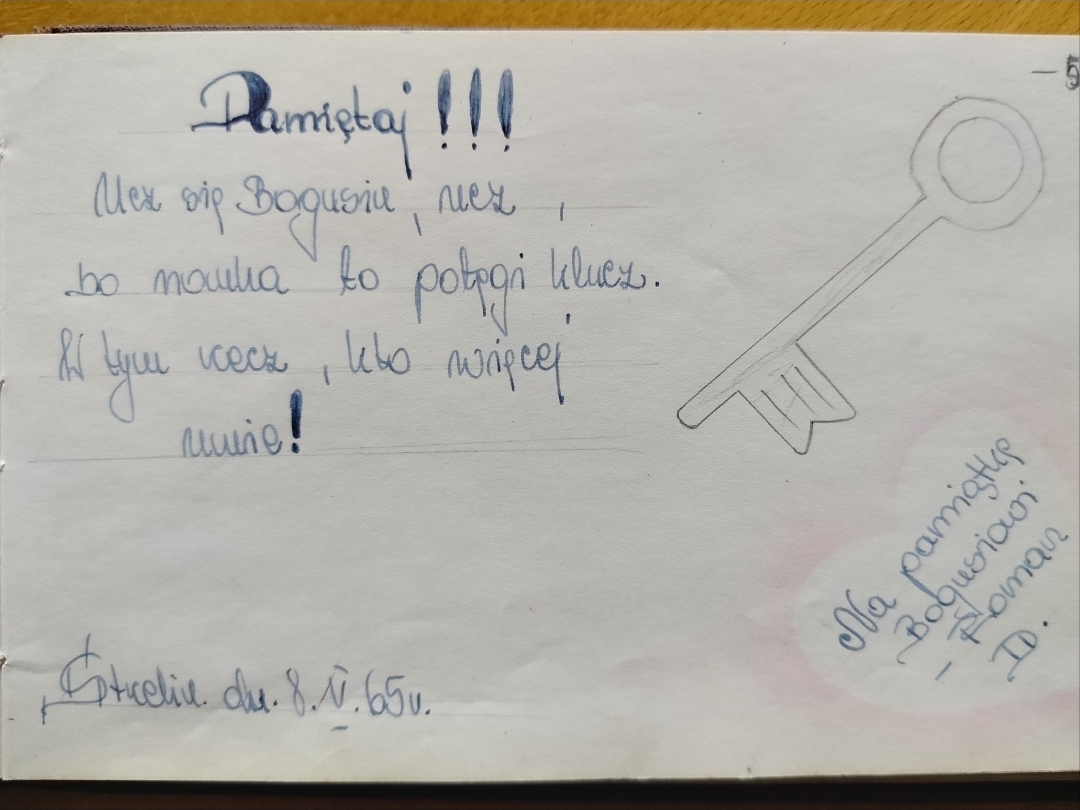 Pamiętaj !!!
Ucz się Bogusiu, ucz,
bo nauka to potęgi klucz.
W tym rzecz, kto więcej
umie!
Na pamiątkę
Bogusiowi
- Roman
D.
dn. 8.V.65r.
- 5